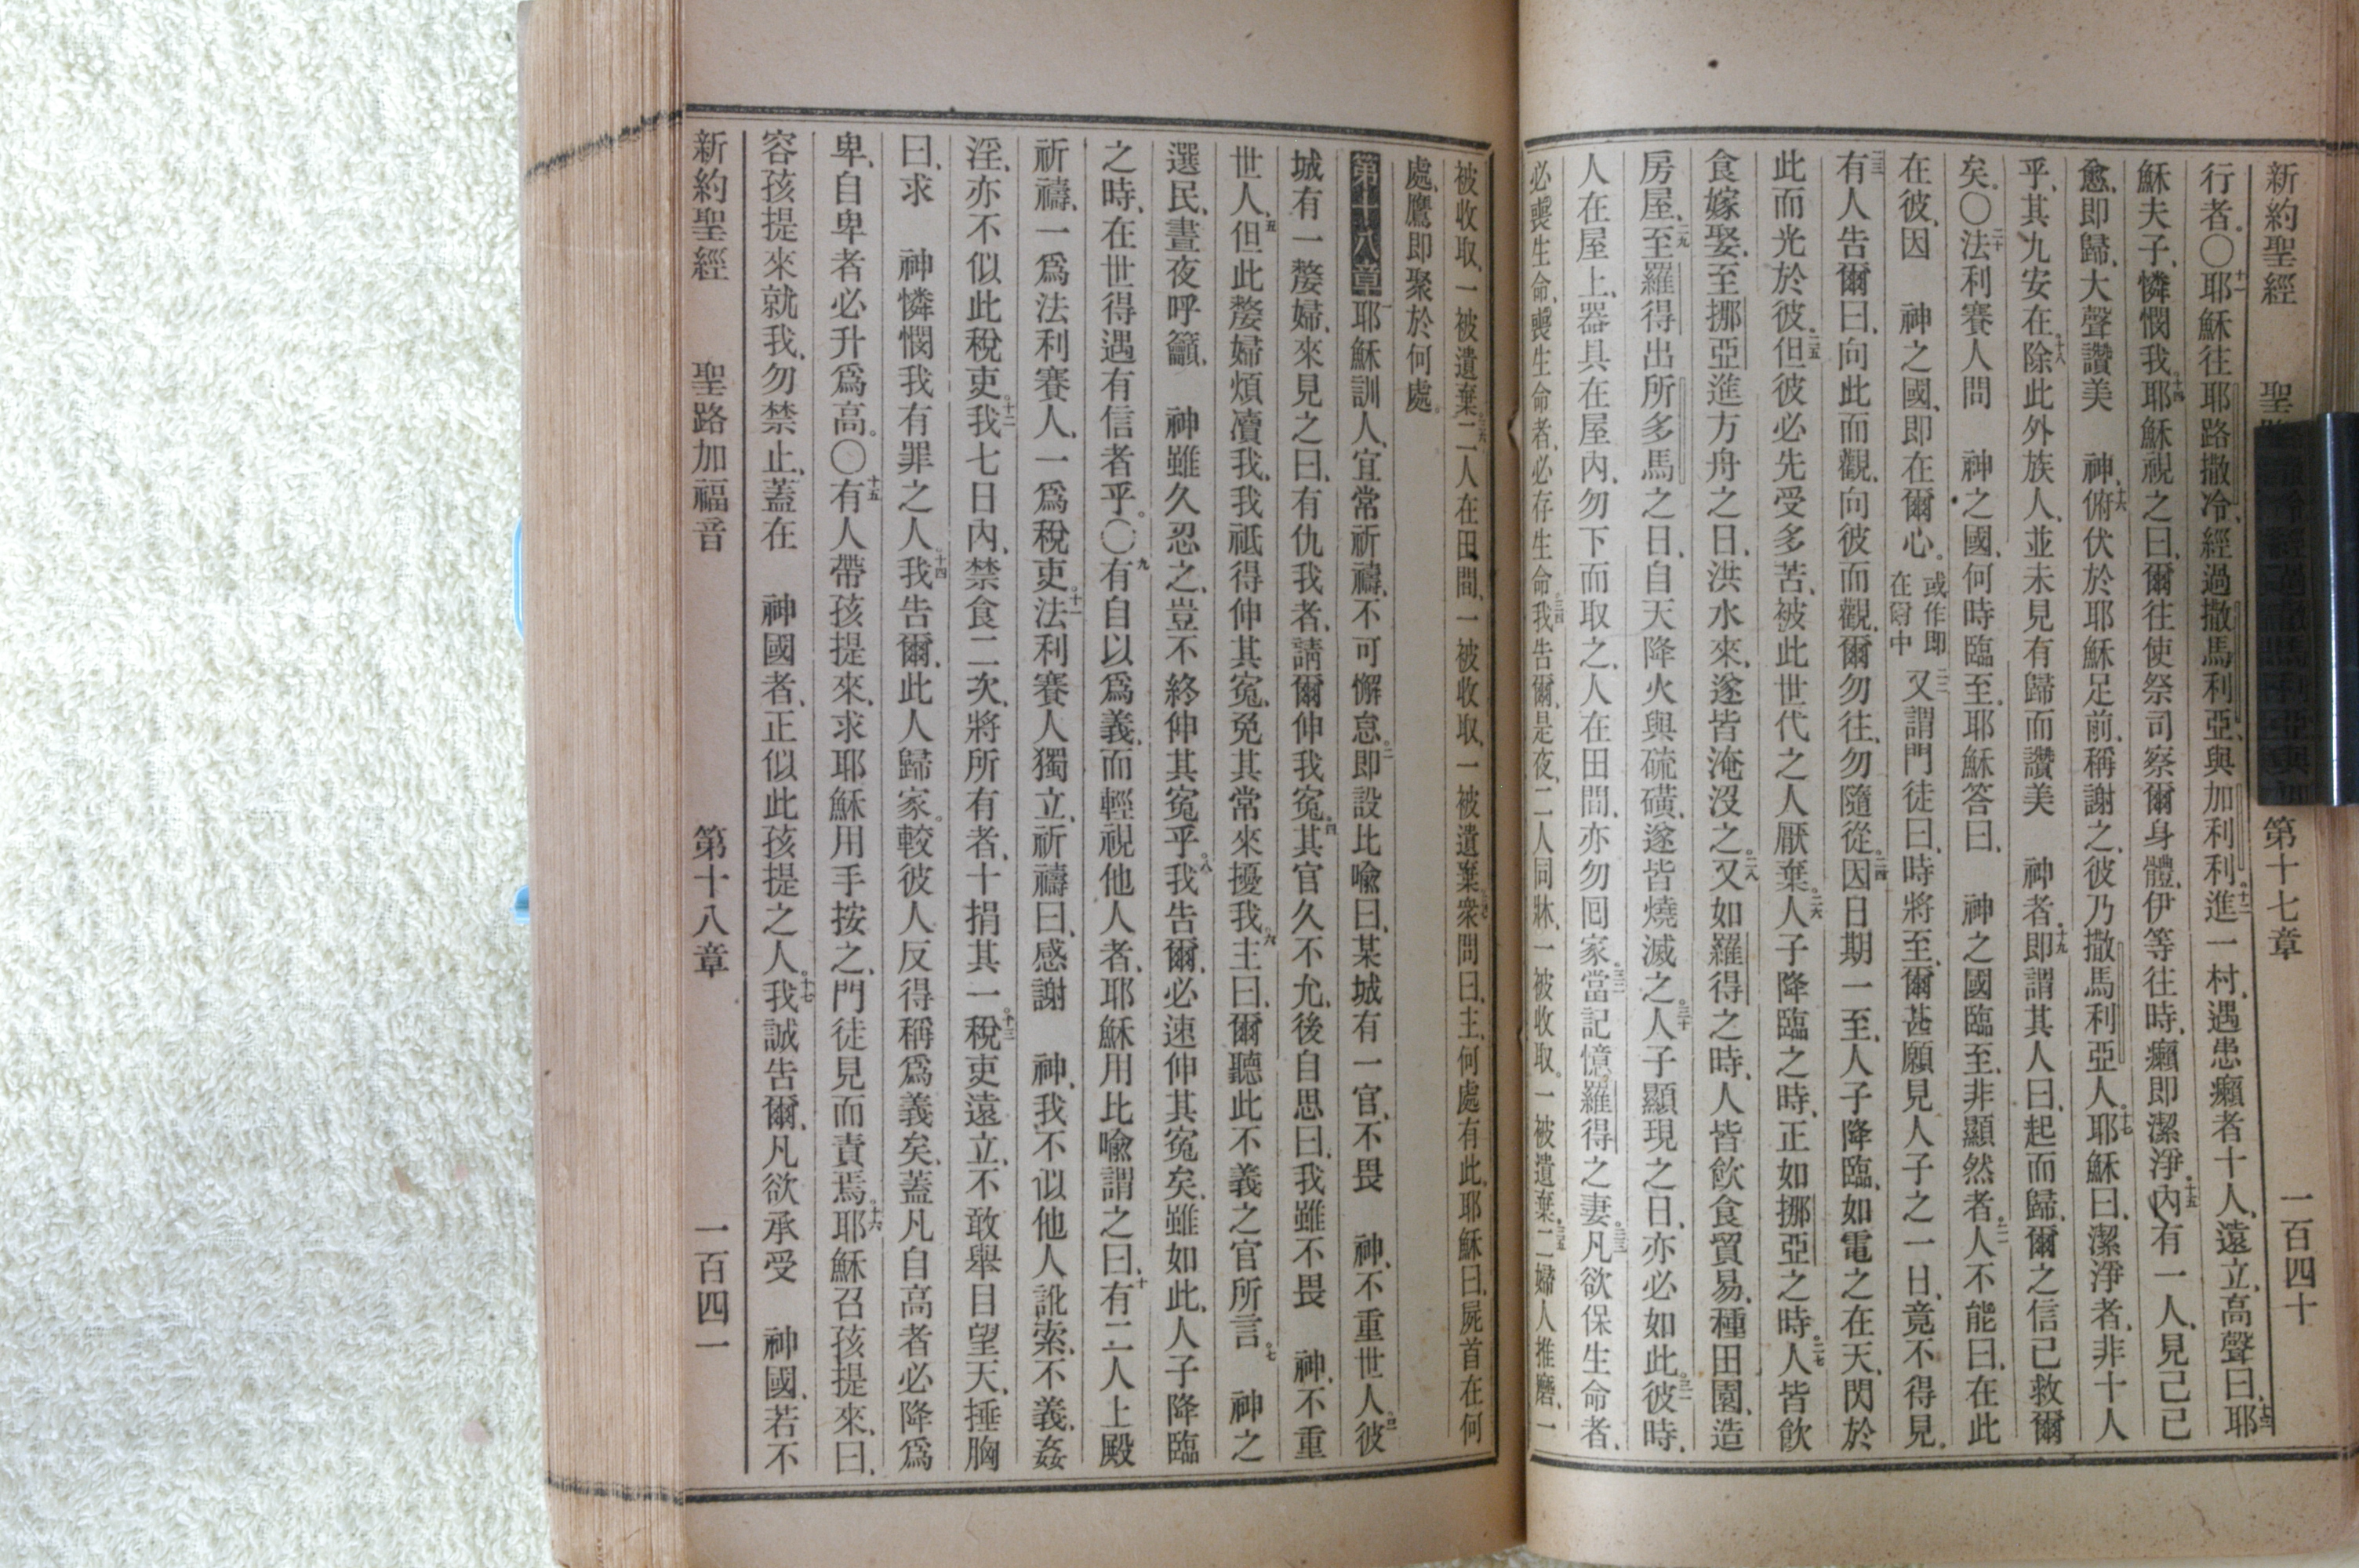 新約聖經 第十七章 一百四十
行者。〇十一耶穌往耶路撒冷、經過撒馬利亞、與加利利。十二進一村、遇患癩者十人、遠立、高聲曰、十三耶
穌夫子、憐憫我。十四耶穌視之曰、爾往使祭司察爾身體、伊等往時、癩即潔淨。十五內有一人、見己已
愈、即歸、大聲讚美　神、十六俯伏於耶穌足前、稱謝之、彼乃撒馬利亞人。十七耶穌曰、潔淨者、非十人
乎、其九安在。十八除此外族人、並未見有歸而讚美　神者。十九即謂其人曰、起而歸、爾之信已救爾
矣。〇二十法利賽人問　神之國、何時臨至。耶穌答曰、　神之國臨至、非顯然者。二一人不能曰、在此
在彼、因　神之國、即在爾心。或作即在爾中二二又謂門徒曰、時將至、爾甚願見人子之一日、竟不得見。
二三有人告爾曰、向此而觀、向彼而觀、爾勿往、勿隨從。二四因日期一至、人子降臨、如電之在天、閃於
此而光於彼。二五但彼必先受多苦、被此世代之人厭棄。二六人子降臨之時、正如挪亞之時。二七人皆飲
食嫁娶、至挪亞進方舟之日、洪水來、遂皆淹沒之。二八又如羅得之時、人皆飲食貿易、種田園、造
房屋、二九至羅得出所多馬之日、自天降火與硫磺、遂皆燒滅之。三十人子顯現之日、亦必如此。三一彼時、
人在屋上、器具在屋內、勿下而取之、人在田間、亦勿囘家。三二當記憶羅得之妻。三三凡欲保生命者、
必喪生命、喪生命者、必存生命。三四我告爾、是夜、二人同牀、一被收取。一被遺棄。三五二婦人推磨、一
被收取、一被遺棄。三六二人在田間、一被收取、一被遺棄。三七衆問曰、主、何處有此、耶穌曰、屍首在何
處、鷹即聚於何處。
第十八章 一耶穌訓人、宜常祈禱、不可懈怠。二即設比喩曰、某城有一官、不畏　神、不重世人、三彼
城有一嫠婦、來見之曰、有仇我者、請爾伸我冤。四其官久不允、後自思曰、我雖不畏　神、不重
世人、五但此嫠婦煩瀆我、我祇得伸其冤、免其常來擾我。六主曰、爾聽此不義之官所言。七神之
選民、晝夜呼籲、　神雖久忍之、豈不終伸其冤乎。八我告爾、必速伸其冤矣、雖如此、人子降臨
之時、在世得遇有信者乎。〇九有自以爲義、而輕視他人者、耶穌用比喩謂之曰、十有二人上殿
祈禱、一爲法利賽人、一爲稅吏。十一法利賽人獨立、祈禱曰、感謝　神、我不似他人訛索、不義、姦
淫、亦不似此稅吏。十二我七日內、禁食二次、將所有者、十捐其一。十三稅吏遠立、不敢舉目望天、捶胸
曰、求　神憐憫我有罪之人。十四我告爾、此人歸家。較彼人反得稱爲義矣、蓋凡自高者必降爲
卑、自卑者必升爲高。〇十五有人帶孩提來、求耶穌用手按之、門徒見而責焉。十六耶穌召孩提來、曰、
容孩提來就我、勿禁止、蓋在　神國者、正似此孩提之人。十七我誠吿爾、凡欲承受　神國、若不
新約聖經 聖路加福音 第十八章 一百四一